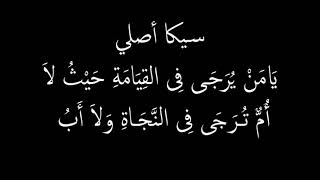 سيكا أصلي
يَامَنْ يُرَجَى فِى القِيَامَةِ حَيْثُ لاَ
أُمٌّ تُرَجَى فِى النَّجَاةِ وَلاَ أَبُ